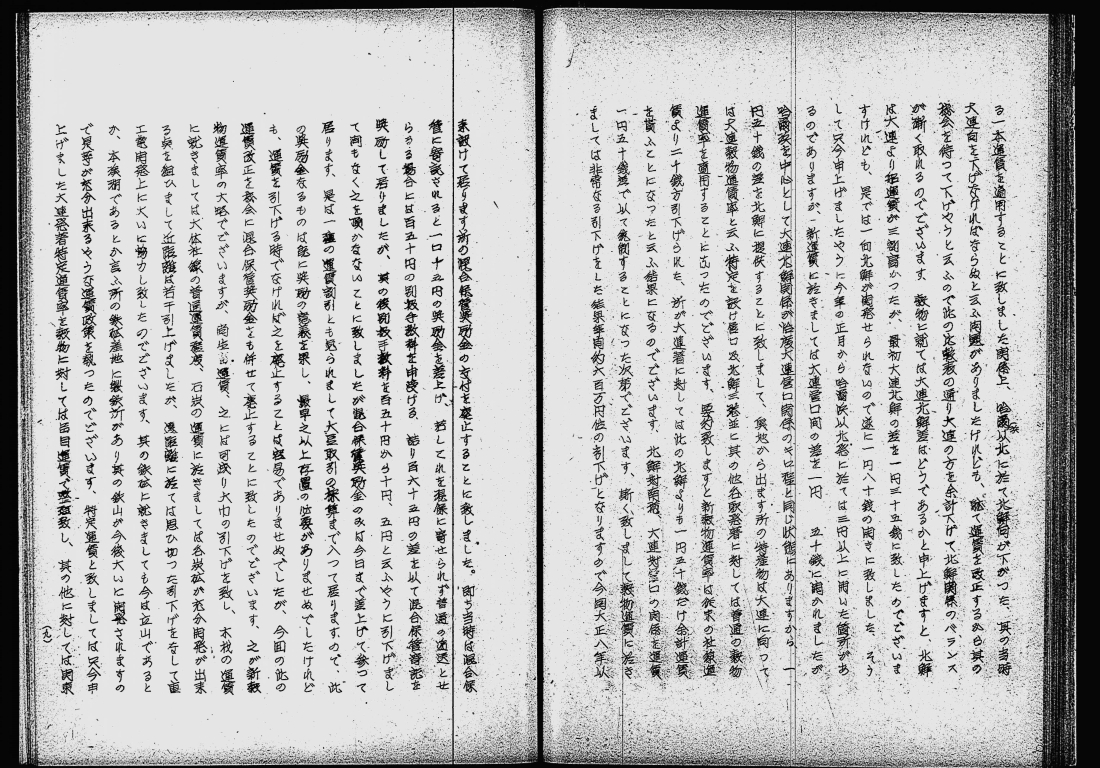 る一本運賃を適用することに致しました関係上、哈爾以北に於て北鮮向が下がつた、其の当時
大連向を下げなければならぬと云ふ問題がありましたけれども、総て運賃を改正するから其の
機会を待つて下げやうと云ふので此の比較表の通り大連の方を余計下げて北鮮関係のバランス
が漸く取れるのでございます。穀物に就ては大連北鮮差はどうであるかと申上げますと、北鮮
は大連より運賃が三割高かつたが、最初大連北鮮の差を一円三十五銭に致したのでございま
すけれども、是では一向北鮮が開発せられないので遂に一円八十銭の開きに致しました。そう
して只今申上げましたやうに今年の正月から哈爾浜以北発に於ては三円以上に開いた箇所があ
るのでありますが、新運賃に於きましては大連営口間の差を一円 五十銭に開かれましたが
哈爾浜を中心として大連北鮮関係が恰度大連営口関係のキロ程と同じ状態にありますから、一
円五十銭の差を北鮮に提供することに致しまして、奥地から出ます所の特産物は大連に向つて
は大連穀物運賃率と云ふ特定を設け営口及北鮮三港並に其の他各駅発着に対しては普通の穀物
運賃率を適用することになつたのでございます。要約致しますと新穀物運賃率は従来の社線運
賃より二十銭方引下げられた、所が大連着に対しては此の北鮮よりも一円五十銭だけ余計運賃
を貰ふことになつたと云ふ結果になるのでございます。北鮮対南朝、大連対営口の関係を運賃
一円五十銭差で以て規制することになつた次第でございます、斯く致しまして穀物運賃に於き
ましては非常なる引下げをした結果年間約六百万円位の引下げとなりますので今回大正八年以
来設けて居ります所の混合保管奨励金の交付を廃止することに致しました。即ち当時は混合保
管に寄託されると一口十五円の奨励金を差上げ、若しそれを混保に寄せられず普通の運送とせ
らるる場合には百五十円の割扱手数料を申受ける、詰り百六十五円の差を以て混合保管寄託を
奨励して居りましたが、其の後割扱手数料を百五十円から十円、五円と云ふやうに引下げまし
て間もなく之を頂かないことに致しましたが混合保管奨励金のみは今日まで差上げて参つて
居ります、是は一種の運賃割引とも見られまして大豆取引の採算まで入つて居りますので、此
の奨励金なるものは既に奨励の意義を果し、最早之以上存置の必要がありませぬでしたけれど
も、運賃を引下げる時でなければ之を廃止することは容易でありませぬでしたが、今回の此の
運賃改正を機会に混合保管奨励金をも併せて廃止することに致したのでございます。之が新穀
物運賃率の大略でございますが、尚生活運賃、之には可成り大巾の引下げを致し、木材の運賃
に就きましては大体社線の普通運賃程度、石炭の運賃に於きましては各炭砿が充分開発が出来
る点を狙ひまして近距離は若干引上げましたが、遠距離に於ては思ひ切つた引下げをなして重
工業開発上に大いに協力し致したのでございます、其の鉄砿に就きましても今は立山であると
か、本渓湖であるとか言ふ所の鉄砿産地に製鉄所があり其の鉄山が今後大いに開発されますの
で是等が充分出来るやうな運賃政策を取つたのでございます、特定運賃と致しましては只今申
上げました大連発着特定運賃率を穀物に対しては当目運賃で整理致し、其の他に対しては関東
（九）